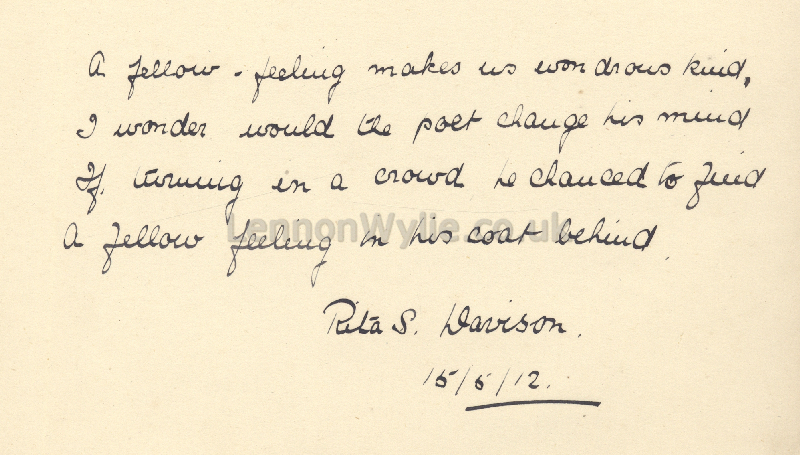 A fellow-feeling makes us wondrous kind,
I wonder would the poet change his mind
If, turning in a crowd he chanced to find
A fellow feeling in his coat behind.
LennonWylie.co.uk
Rita S. Davison.
15/5/12.